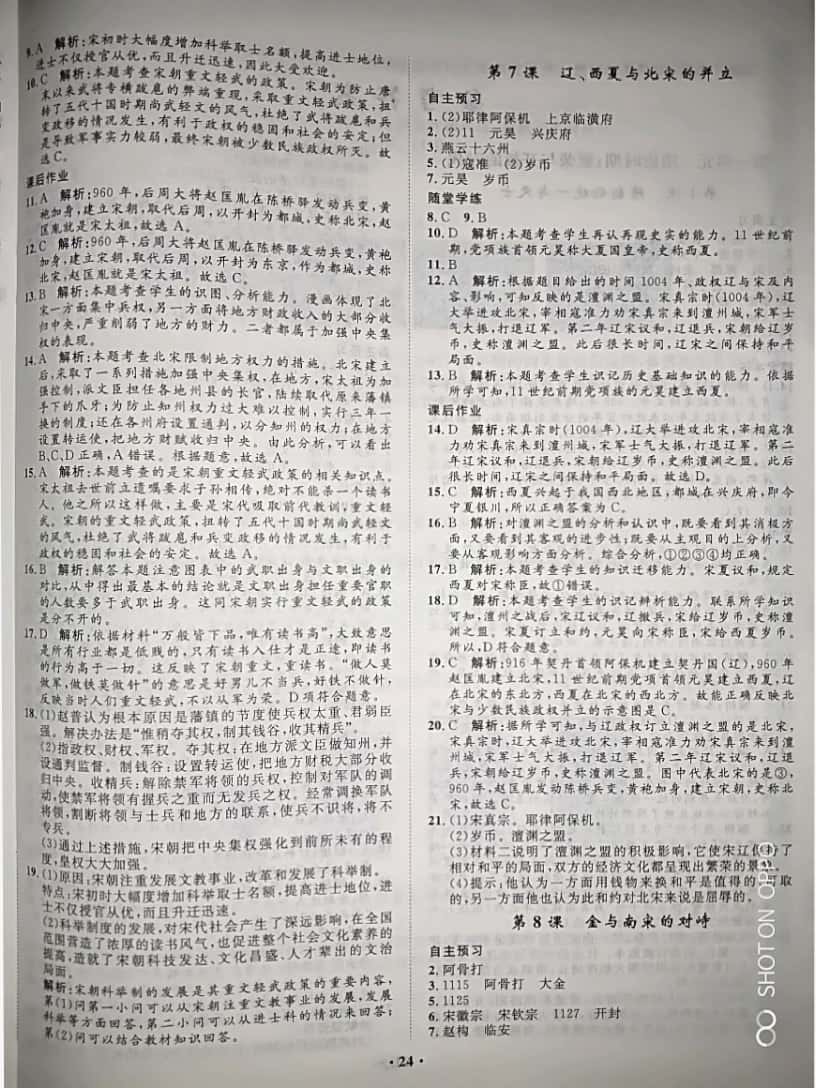 9. A 解析:宋初时大幅度增加科举取士名额,提高进士地位,
进士不仅授官从优,而且升迁迅速,因此大受欢迎。
10. C 解析:本题考查宋朝重文轻武的政策。宋朝为防止唐
末以来武将专横跋扈的弊端重现,采取重文轻武政策,扭
转了五代十国时期尚武轻文的风气,杜绝了武将跋扈和兵
变政移的情况发生,有利于政权的稳固和社会的安定;但
是导致军事实力较弱,最终宋朝被少数民族政权所灭。故
选 C。
课后作业
11. A 解析:960 年,后周大将赵匡胤在陈桥驿发动兵变,黄
袍加身,建立宋朝,取代后周,以开封为都城,史称北宋,赵
匡胤就是宋太祖,故选 A。
12. C 解析:960 年,后周大将赵匡胤在陈桥驿发动兵变,黄袍
加身,建立宋朝,取代后周,以开封为东京,作为都城,史称
北宋,赵匡胤就是宋太祖。故选 C。
13. B 解析:本题考查学生的识图、分析能力。漫画体现了北
宋一方面集中兵权,另一方面将地方财政收入的大部分收
归中央,严重削弱了地方的财力。二者都属于加强中央集
权的表现。
14. A 解析:本题考查北宋限制地方权力的措施。北宋建立
后,采取了一系列措施加强中央集权,在地方,宋太祖为加
强控制,派文臣担任各地州县的长官,陆续取代原来藩镇
手下的爪牙;为防止知州权力过大难以控制,实行三年一
换的制度;还在各州府设置通判,以分知州的权力;在地方
设置转运使,把地方财赋收归中央。由此分析,可以看出
B,C,D 正确,A 错误。根据题意,故选 A。
15. A 解析:本题考查的是宋朝重文轻武政策的相关知识点。
宋太祖去世前立遗嘱要求子孙相传,绝对不能杀一个读书
人。他之所以这样做,主要是宋代吸取前代教训,重文轻
武。宋朝的重文轻武政策,扭转了五代十国时期尚武轻文
的风气,杜绝了武将跋扈和兵变政移的情况发生,有利于
政权的稳固和社会的安定。故选 A。
16. B 解析:解答本题注意图表中的武职出身与文职出身的
对比,从中得出最基本的结论就是文职出身担任重要官职
的人数要多于武职出身。这同宋朝实行重文轻武的政策
是分不开的。
17. D 解析:依据材料“万般皆下品,唯有读书高”,大致意思
是所有行业都是低贱的,只有读书入仕才是正途,即读书
的行为高于一切。这反映了宋朝重文,重读书。“做人莫
做军,做铁莫做针”的意思是好男儿不当兵,好铁不做针,
反映当时人们重文轻武,不以从军为荣。D 项符合题意。
18. (1)赵普认为根本原因是藩镇的节度使兵权太重、君弱臣
强。解决办法是“惟稍夺其权,制其钱谷,收其精兵”。
(2)指政权、财权、军权。夺其权:在地方派文臣做知州,并
设通判监督。制钱谷:设置转运使,把地方财税大部分收
归中央。收精兵:解除禁军将领的兵权,控制对军队的调
动,使禁军将领有握兵之重而无发兵之权。经常调换军队
将领,割断将领与士兵和地方的联系,使兵不识将,将不
专兵。
(3)通过上述措施,宋朝把中央集权强化到前所未有的程
度,皇权大大加强。
19. (1)原因:宋朝注重发展文教事业,改革和发展了科举制。
特点:宋初时大幅度增加科举取士名额,提高进士地位,进
士不仅授官从优,而且升迁迅速。
(2)科举制度的发展,对宋代社会产生了深远影响,在全国
范围营造了浓厚的读书风气,也促进整个社会文化素养的
提高,造就了宋朝科技发达、文化昌盛、人才辈出的文治
局面。
解析:宋朝科举制的发展是其重文轻武政策的重要内容,
第(1)问第一小问可以从宋朝注重文教事业的发展,发展
科举等方面回答,第二小问可以从进士科的情况来回答;
第(2)问可以结合教材知识回答。
第 7 课 辽、西夏与北宋的并立
自主预习
1. (2)耶律阿保机 上京临潢府
2. (2)11 元昊 兴庆府
3. 燕云十六州
5. (1)寇准 (2)岁币
7. 元昊 岁币
随堂学练
8. C 9. B
10. D 解析:本题考查学生再认再现史实的能力。11 世纪前
期,党项族首领元昊称大夏国皇帝,史称西夏。
11. B
12. A 解析:根据题目给出的时间 1004 年、政权辽与宋及内
容、影响,可知反映的是澶渊之盟。宋真宗时(1004 年),辽
大举进攻北宋,宰相寇准力劝宋真宗来到澶州城,宋军士
气大振,打退辽军。第二年辽宋议和,辽退兵,宋朝给辽岁
币,史称澶渊之盟。此后很长时间,辽宋之间保持和平
局面。
13. B 解析:本题考查学生识记历史基础知识的能力。依据
所学可知,11 世纪前期党项族的元昊建立西夏。
课后作业
14. D 解析:宋真宗时(1004 年),辽大举进攻北宋,宰相寇准
力劝宋真宗来到澶州城,宋军士气大振,打退辽军。第二
年辽宋议和,辽退兵,宋朝给辽岁币,史称澶渊之盟。此后
很长时间,辽宋之间保持和平局面。故选 D。
15. C 解析:西夏兴起于我国西北地区,都城在兴庆府,即今
宁夏银川,所以正确答案为 C。
16. B 解析:对澶渊之盟的分析和认识中,既要看到其消极方
面,又要看到其客观的进步性;既要从主观目的上分析,又
要从客观影响方面分析。综合分析,①②③④均正确。
17. B 解析:本题考查学生的知识迁移能力。宋夏议和,规定
西夏对宋称臣,故①错误。
18. D 解析:本题考查学生的识记辨析能力。联系所学知识
可知,澶州之战后,宋辽议和,辽撤兵,宋给辽岁币,史称澶
渊之盟。宋夏订立和约,元昊向宋称臣,宋给西夏岁币。
所以,D 符合题意。
19. C 解析:916 年契丹首领阿保机建立契丹国(辽),960 年
赵匡胤建立北宋,11 世纪前期党项首领元昊建立西夏,辽
在北宋的东北方,西夏在北宋的西北方。故能正确反映北
宋与少数民族政权并立的示意图是 C。
20. C 解析:据所学可知,与辽政权订立澶渊之盟的是北宋,
宋真宗时,辽大举进攻北宋,宰相寇准力劝宋真宗来到澶
州城,宋军士气大振,打退辽军。第二年辽宋议和,辽退
兵,宋朝给辽岁币,史称澶渊之盟。图中代表北宋的是③,
960 年,赵匡胤发动陈桥兵变,黄袍加身,建立宋朝,史称北
宋,故选 C。
21. (1)宋真宗。耶律阿保机。
(2)岁币。澶渊之盟。
(3)材料二说明了澶渊之盟的积极影响,它使宋辽保持了
相对和平的局面,双方的经济文化都呈现出繁荣的景象。
(4)提示:他认为一方面用钱物来换和平是值得的,可取
的,另一方面他也认为此和约对北宋来说是屈辱的。
第 8 课 金与南宋的对峙
自主预习
2. 阿骨打
3. 1115 阿骨打 大金
5. 1125
6. 宋徽宗 宋钦宗 1127 开封
7. 赵构 临安
· 24 ·
SHOT ON OPPO